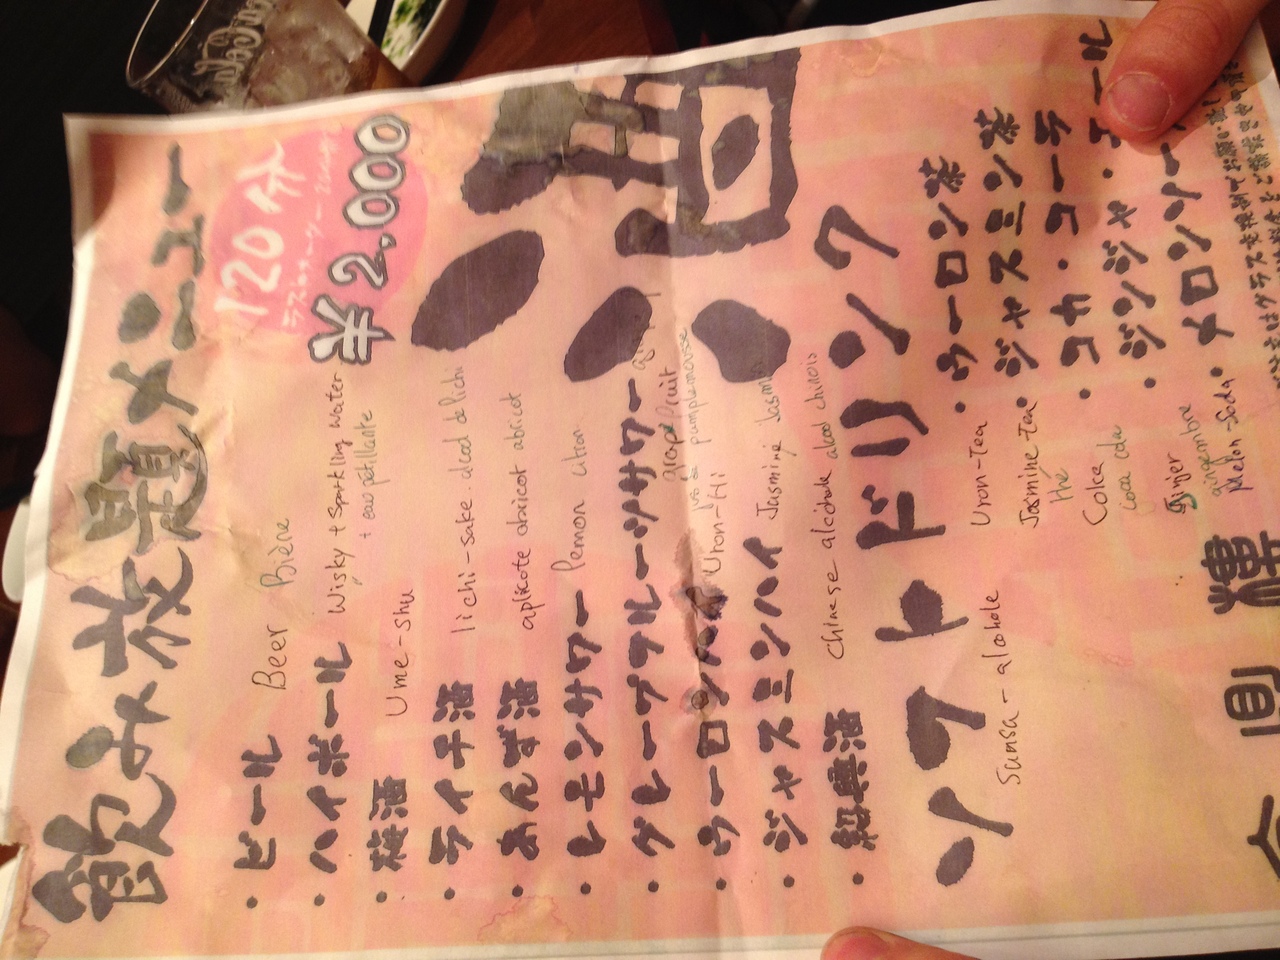 飲み放題メニュー
120分
¥2,000
・ビール Beer Bière
・ハイボール Wisky + Sparkling water
+ eau pétillante
・梅酒 Ume-shu
・ライチ酒 lichi-sake. alcool de lichi
・あんず酒 aplicote abricot abricot
・レモンサワー lemon citron
・グレープフルーツサワー
grapefruit
jus de pamplemousse
・ウーロンハイ Uron-Hi
・ジャスミンハイ Jasmine Jasmin
・紹興酒 Chinese alcohole alcool chinois
酒
ソフトドリンク
Sansa-alcohole
Uron-Tea ・ウーロン茶
Jasmine-Tea ・ジャスミン茶
thé
Coke ・コカ・コーラ
coca cola
Ginjer ・ジンジャ・エール
gingembre
Melon-Soda ・メロンソー
鼎樓
はグラス交換制でお願い致し